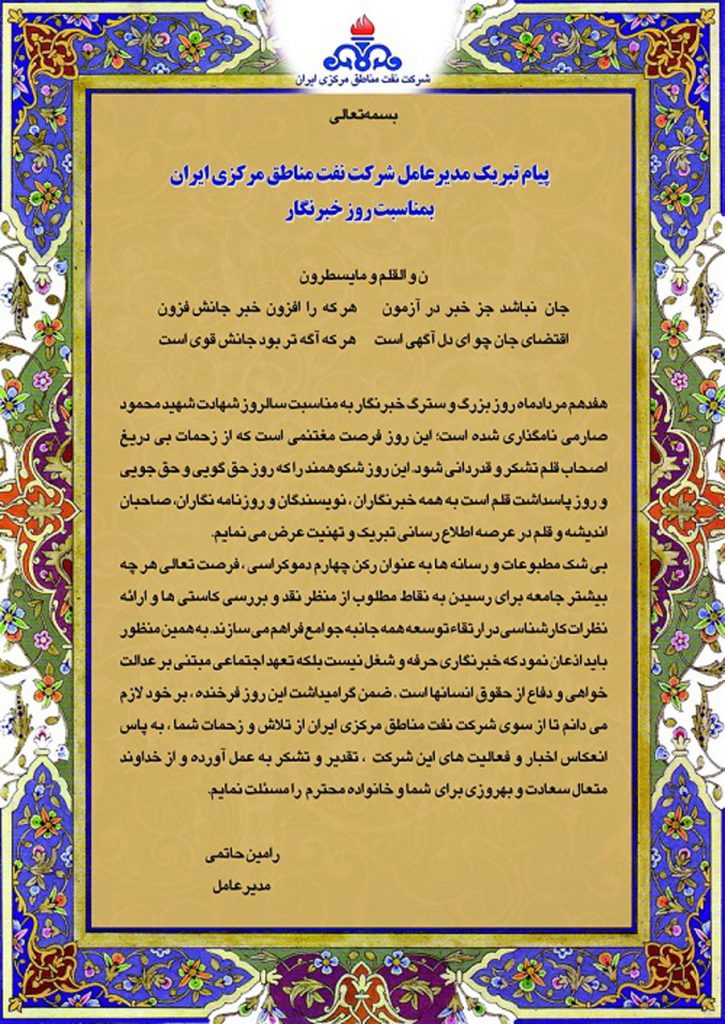 شرکت نفت مناطق مرکزی ایران
بسمه‌تعالی
پیام تبریک مدیرعامل شرکت نفت مناطق مرکزی ایران
بمناسبت روز خبرنگار
ن و القلم و مایسطرون
جان نباشد جز خبر در آزمون هرکه را افزون خبر جانش فزون
اقتضای جان چو ای دل آگهی است هرکه آگه تر بود جانش قوی است
هفدهم مردادماه روز بزرگ و سترگ خبرنگار به مناسبت سالروز شهادت شهید محمود
صارمی نامگذاری شده است؛ این روز فرصت مغتنمی است که از زحمات بی دریغ
اصحاب قلم تشکر و قدردانی شود. این روز شکوهمند را که روز حق گویی و حق جویی
و روز پاسداشت قلم است به همه خبرنگاران، نویسندگان و روزنامه نگاران، صاحبان
اندیشه و قلم در عرصه اطلاع رسانی تبریک و تهنیت عرض می نمایم.
بی شک مطبوعات و رسانه ها به عنوان رکن چهارم دموکراسی ، فرصت تعالی هر چه
بیشتر جامعه برای رسیدن به نقاط مطلوب از منظر نقد و بررسی کاستی ها و ارائه
نظرات کارشناسی در ارتقاء توسعه همه جانبه جوامع فراهم می سازند. به همین منظور
باید اذعان نمود که خبرنگاری حرفه و شغل نیست بلکه تعهد اجتماعی مبتنی بر عدالت
خواهی و دفاع از حقوق انسانها است . ضمن گرامیداشت این روز فرخنده ، بر خود لازم
می دانم تا از سوی شرکت نفت مناطق مرکزی ایران از تلاش و زحمات شما ، به پاس
انعکاس اخبار و فعالیت های این شرکت ، تقدیر و تشکر به عمل آورده و از خداوند
متعال سعادت و بهروزی برای شما و خانواده محترم را مسئلت نمایم.
رامین حاتمی
مدیرعامل